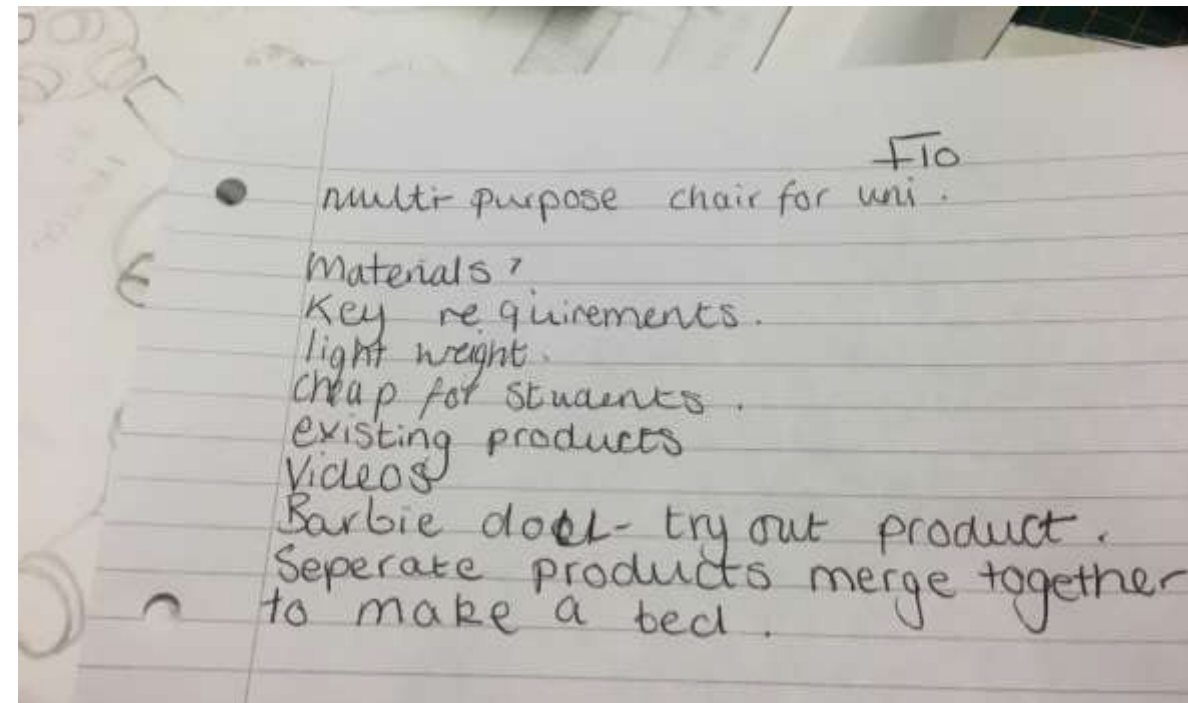 Flo
multi-purpose chair for uni.
Materials?
Key requirements.
light weight.
cheap for students.
existing products
Videos
Barbie doll - try out product.
Seperate products merge together
to make a bed.